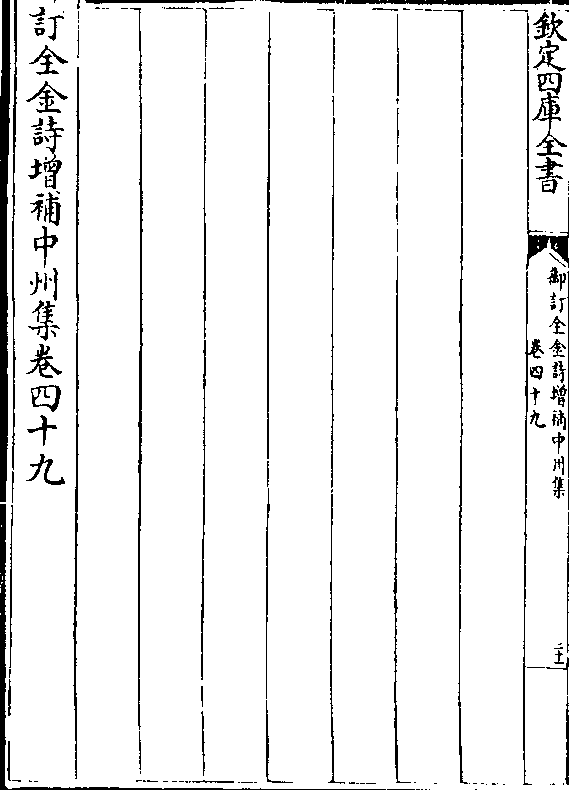 欽定四庫全書
御訂全金詩增補中州集
卷四十九
二十一
訂全金詩增補中州集卷四十九